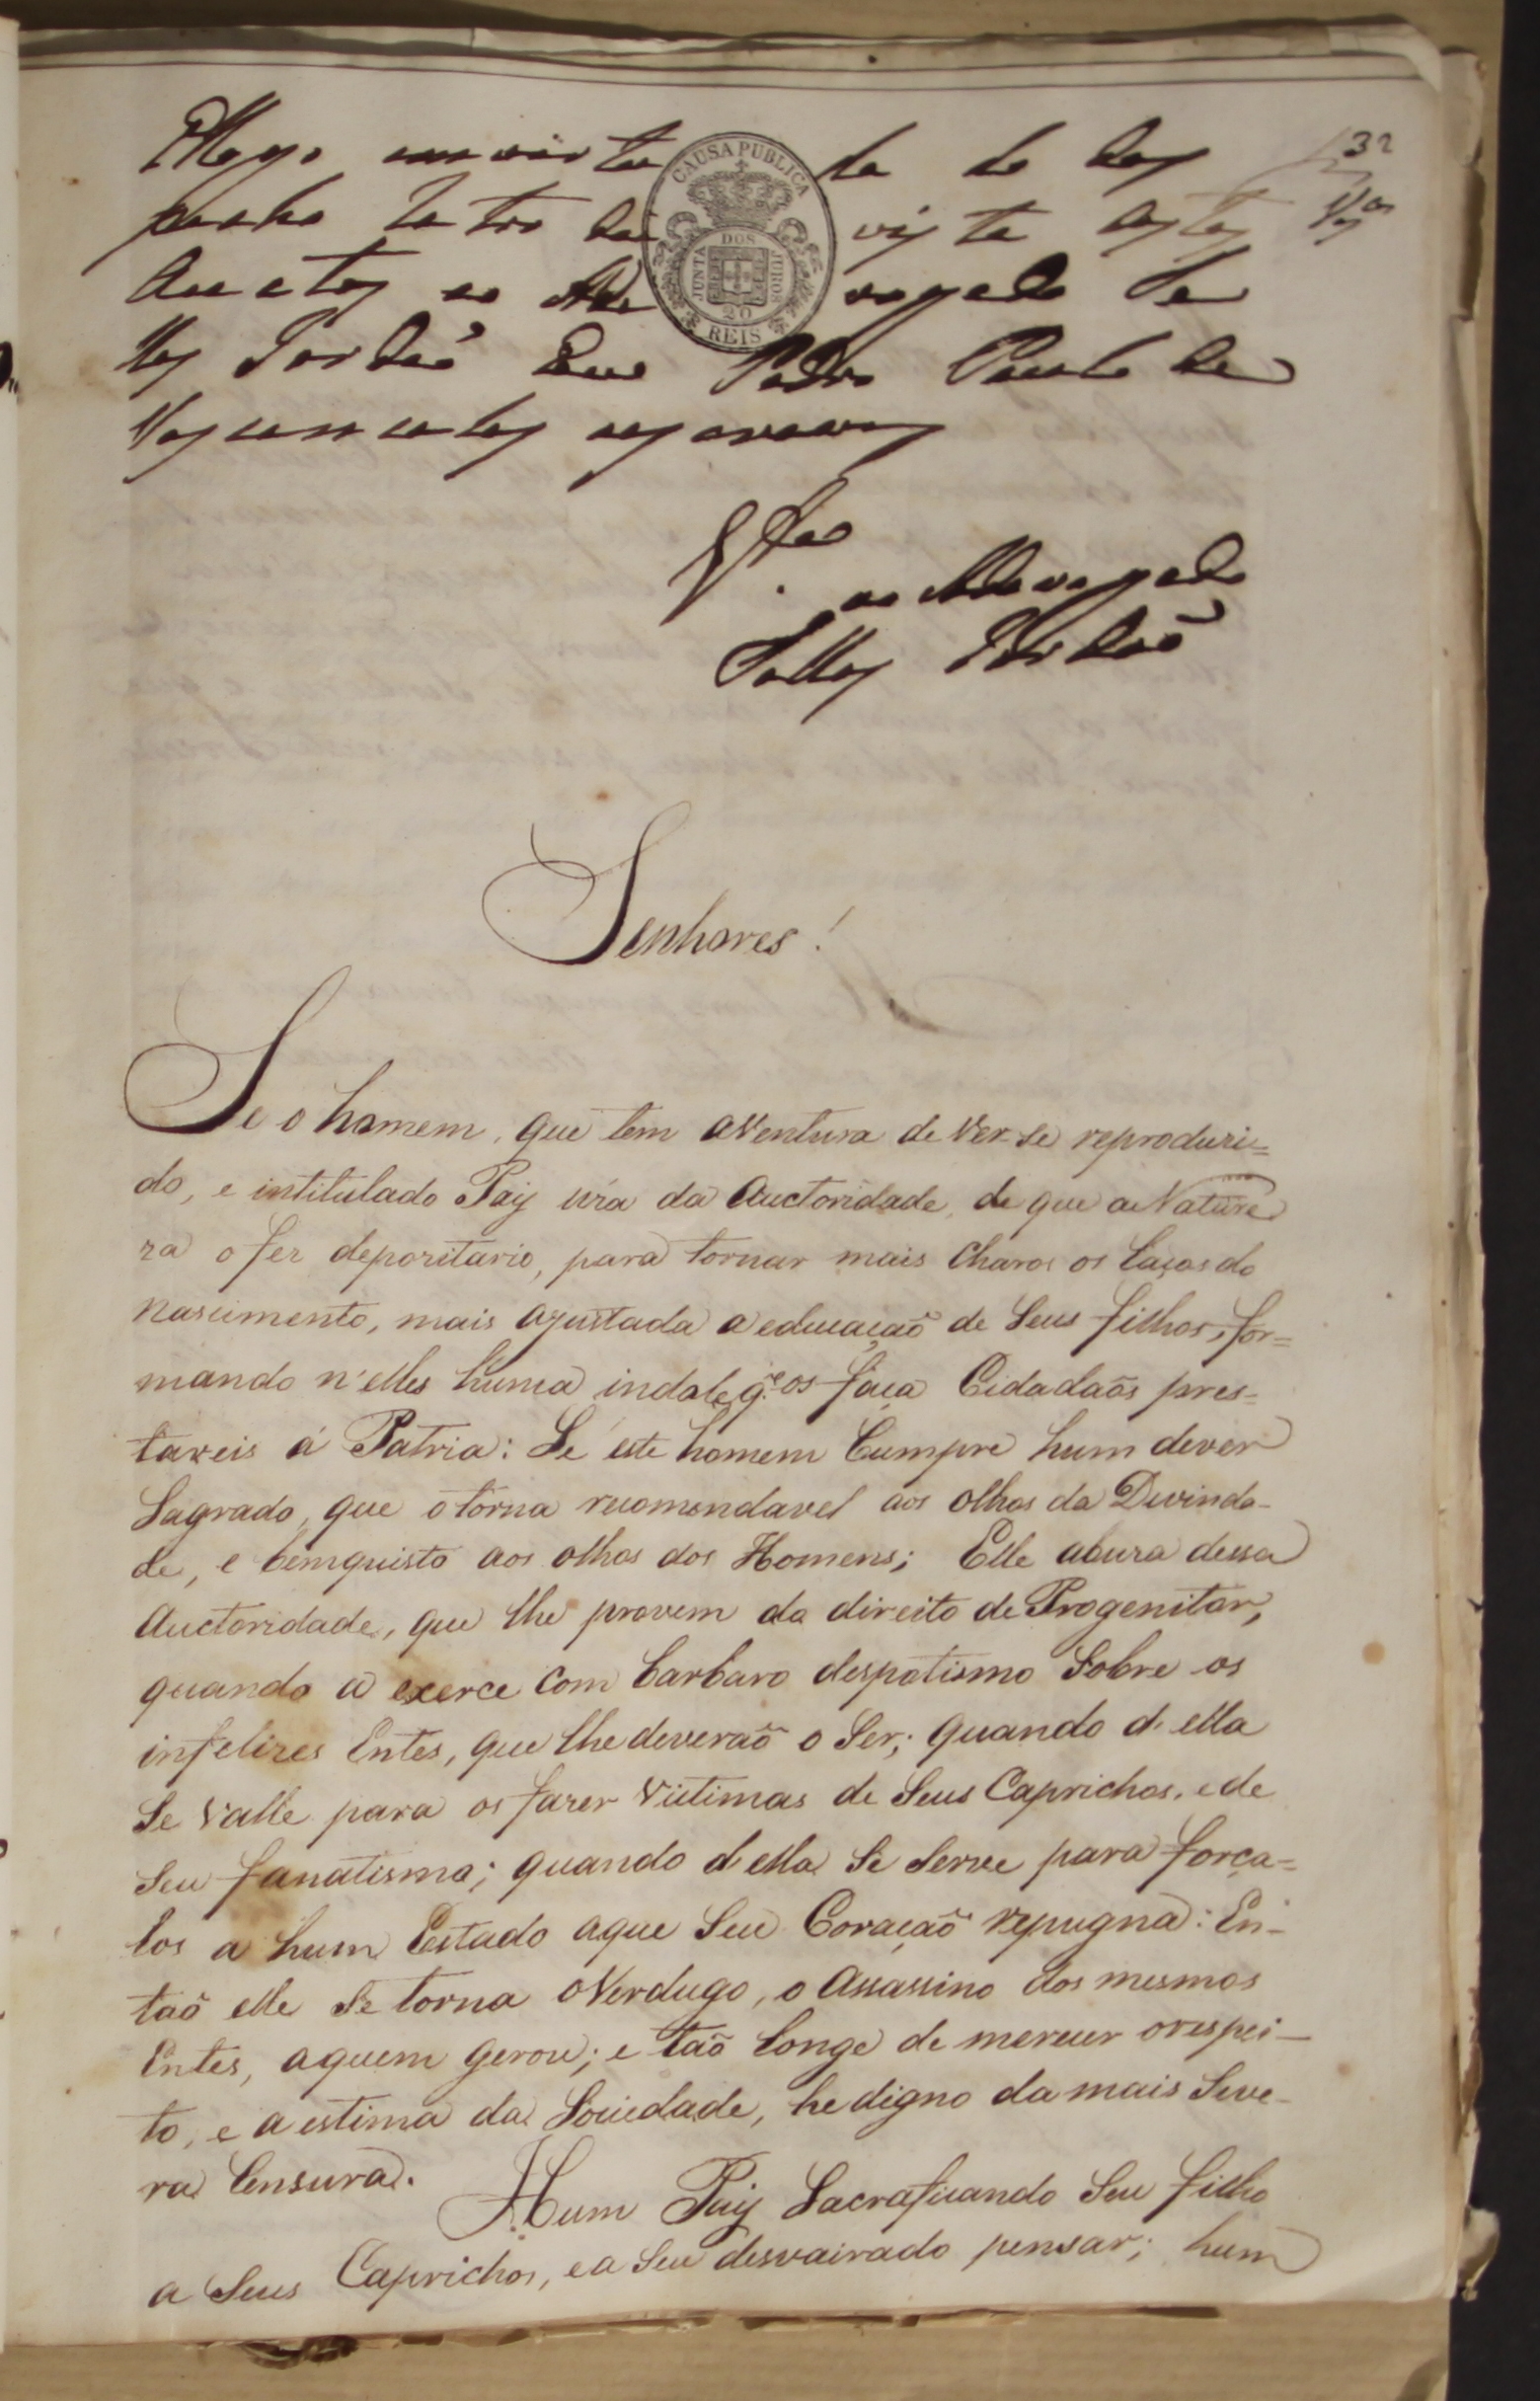 32
CAUSA PUBLICA
JUNTA DOS JUROS
20
REIS
vista
Auctos ao Advogado
Pedro Paulo de
Vasconcelos
ao Advogado
Senhores!
Se o homem, que tem aVentura de Ver-se reproduzi=
do, e intitulado Paiy uza da Auctoridade, de que a Nature
za o fez depozitario, para tornar mais Charos os laços do
Nascimento, mais ajustada a educação de Seus filhos, for=
mando n'elles huma indole q.e os faça Cidadaõs pres=
taveis á Patria: Se este homem Cumpre hum dever
Sagrado, que o torna recomendavel aos olhos da Divinda-
de, e bemquisto aos olhos dos Homens; Elle abuza dessa
Auctoridade, que lhe provem do direito de Progenitor,
quando a exerce Com barbaro despotismo Sobre os
infelizes Entes, que lhe deveraõ o Ser; quando d'ella
Se Valle para os fazer Victimas de Seus Caprichos, e de
Seu fanatismo; quando d'ella Se Serve para força=
los a hum Estado aque Seu Coraçaõ repugna: En-
taõ elle Se torna oVerdugo, o Assassino dos mesmos
Entes, aquem gerou; e taõ longe de merecer orespei-
to, e a estima da Sociedade, he digno da mais Seve-
ra Censura.
Hum Paiy Sacraficando Seu filho
a Seus Caprichos, e a Seu desvairado pensar; hum